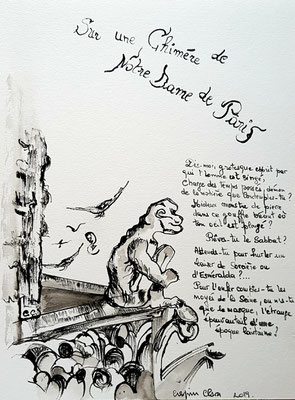 Sur une Chimère de
Notre Dame de Paris
Dis-moi, grotesque esprit par
qui l'homme est singé,
Chargé des temps passés, démon
de la nature que contemples-tu ?
Hideux monstre de pierre
dans ce gouffre béant où
ton œil est plongé ?
Rêves-tu le Sabbat ?
Attends-tu pour hurler un
de Sorcière ou
d'Esméralda ?...
Pour l'enfer -tu les
noyés de la Seine, ou n'es-tu
que le masque, l'étrange
d'une
époque lointaine ?
2019.